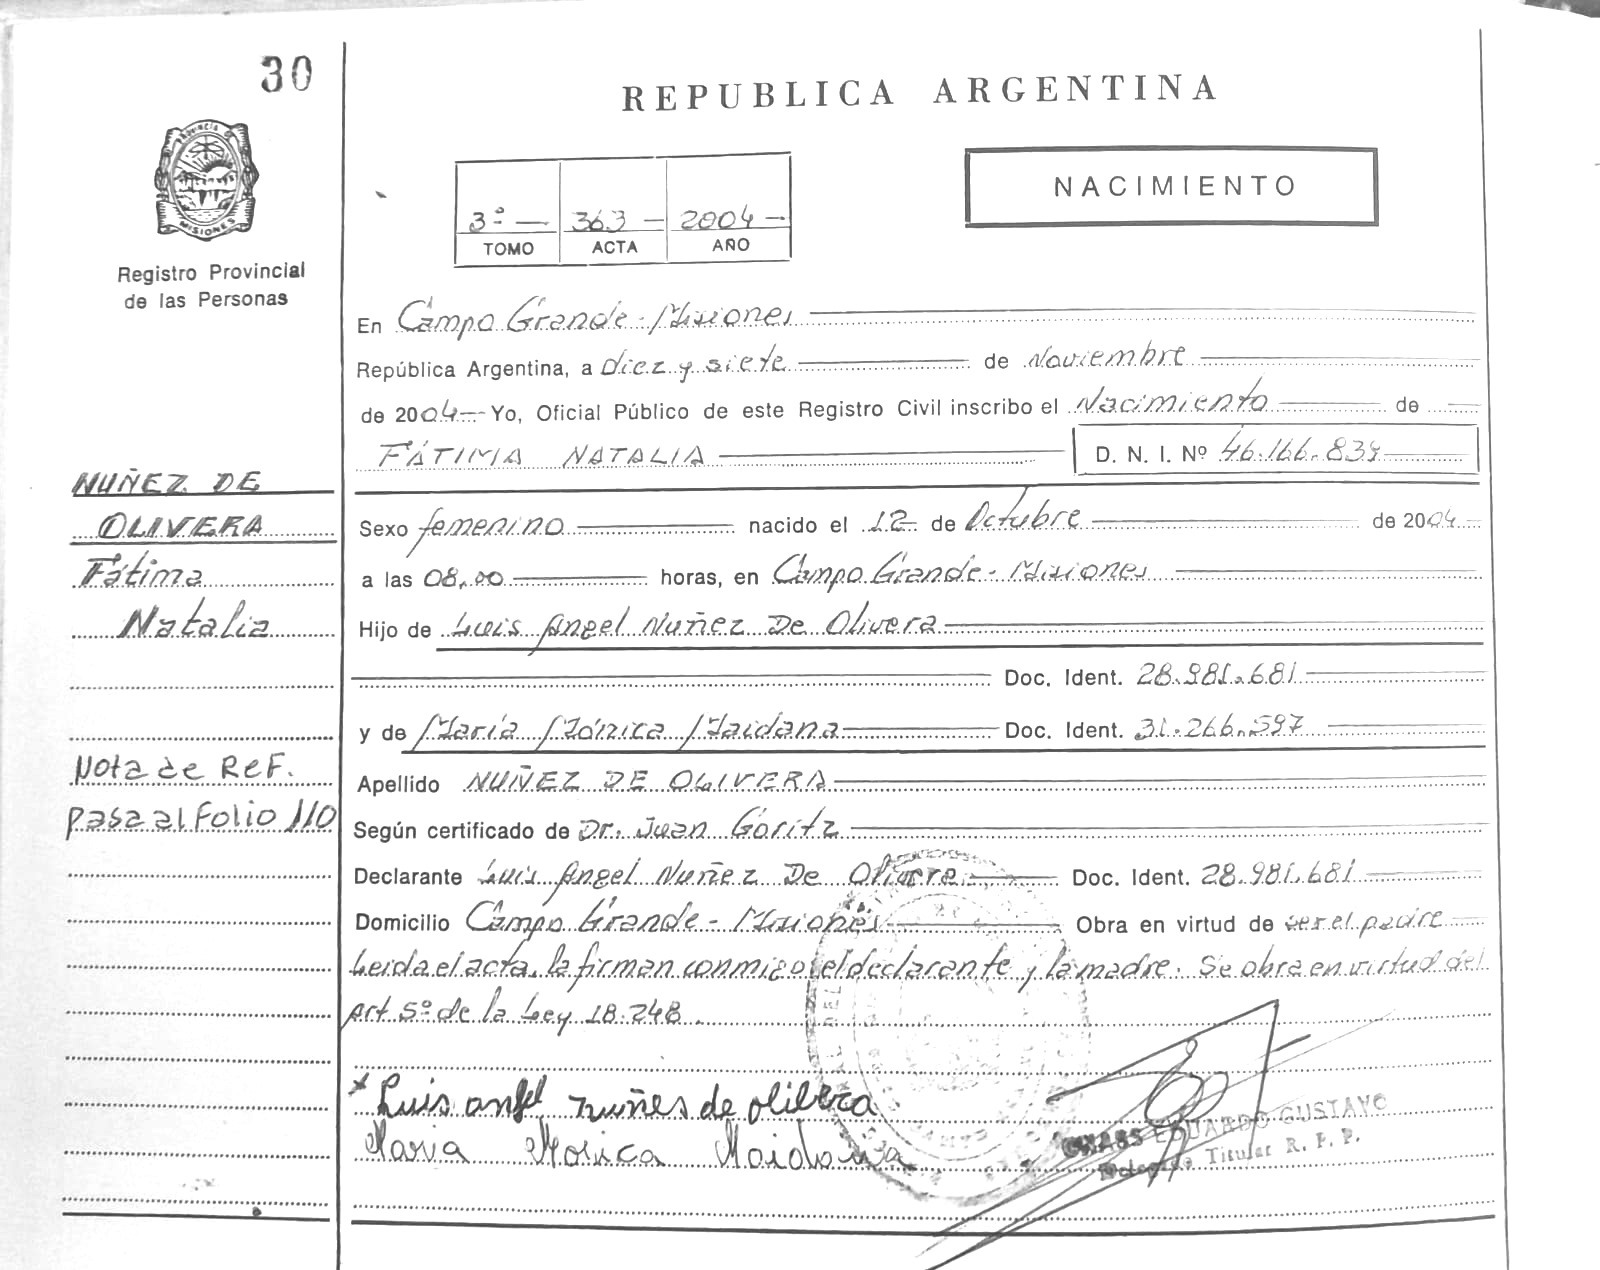 30
REPUBLICA ARGENTINA
PROVINCIA DE
MISIONES
Registro Provincial
de las Personas
NACIMIENTO
3º — 363 — 2004 —
TOMO ACTA AÑO
En Campo Grande - Misiones
República Argentina, a diez y siete de Noviembre
de 2004 — Yo, Oficial Público de este Registro Civil inscribo el Nacimiento de
FÁTIMA NATALIA D. N. I. Nº 46.166.834
NUÑEZ DE
OLIVERA
Fátima
Natalia
Nota de Ref.
pasa al Folio 110
Sexo femenino nacido el 12 de Octubre de 2004
a las 08,00 horas, en Campo Grande - Misiones
Hijo de Luis Angel Nuñez De Olivera
Doc. Ident. 28.981.681
y de María Mónica Maidana Doc. Ident. 31.266.597
Apellido NUÑEZ DE OLIVERA
Según certificado de Dr. Juan Goritz
Declarante Luis Angel Nuñez De Olivera Doc. Ident. 28.981.681
Domicilio Campo Grande - Misiones Obra en virtud de ser el padre
Leida el acta, la firman conmigo el declarante y la madre. Se obra en virtud del
Art. 5º de la Ley 18.248.
x Luis angel nuñes de olibera
Maria Monica Maidana
EDUARDO GUSTAVO
Delegado Titular R. P. P.